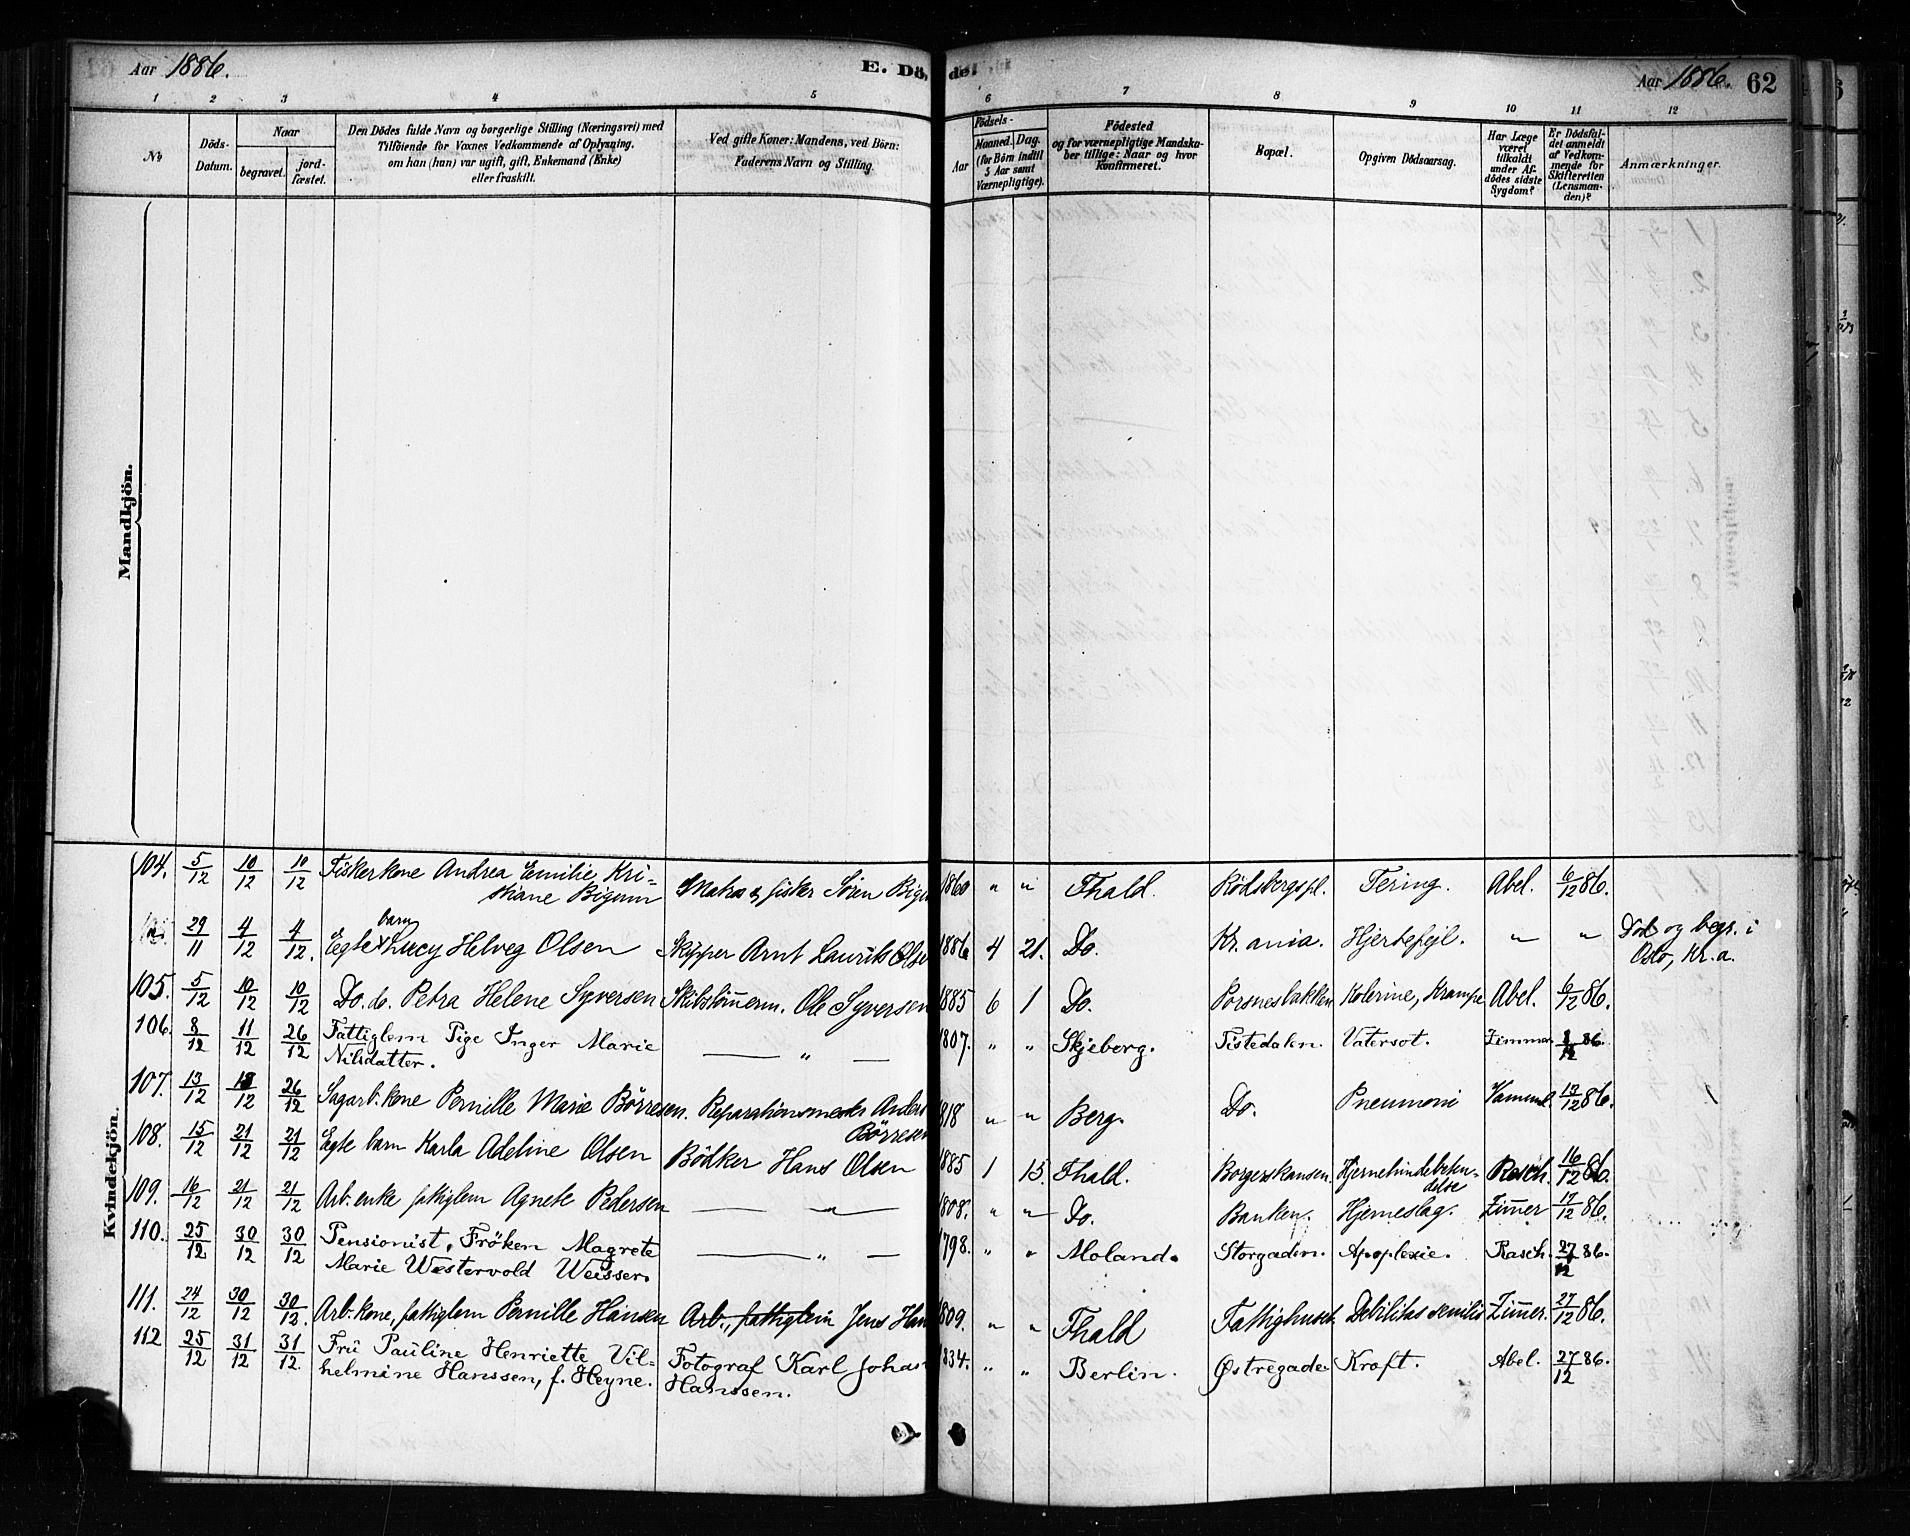 Aar 1886.
E. Dö, del
Aar 1886. 62
1 2 3 4 5 6 7 8 9 10 11 12
№
Döds-Datum.
Naar
begravet.
jord-fæstet.
Den Dödes fulde Navn og borgerlige Stilling (Næringsvei) med
Tilföiende for Voxnes Vedkommende af Oplysning,
om han (hun) var ugift, gift, Enkemand (Enke)
eller fraskilt.
Ved gifte Koner: Mandens, ved Börn:
Faderens Navn og Stilling.
Födsels-
Aar
Maaned. Dag.
(for Börn indtil
5 Aar samt
Værnepligtige).
Födested
og for værnepligtige Mandska-
ber tillige: Naar og hvor
konfirmeret.
Bopæl.
Opgiven Dödsaarsag.
Har Læge
været
tilkaldt
under Af-
dödes sidste
Sygdom?
Er Dödsfal-
det anmeldt
af Vedkom-
mende for
Skifteretten
(Lensman-
den)?
Anmærkninger.
Mandkjön.
Kvindekjön.
104. 5/12 10/12 10/12 Fiskerkone Andrea Emilie Kri-
stiane Bigum fisker Sören 1860 " " Fhald. Rödsbergspl. Tering. Abel. 6/12 86.
29/11 4/12 4/12. Egte barn Lucy Helveg Olsen Skipper Arnt Laurits Olse 1886 4 21. Do. Kr.ania. Hjertefejl. " " Död og begr. i
Oslo, Kr.a.
105. 5/12 10/12 10/12 Do. do. Petra Helene Syversen Skibstömerm. Ole Syversen 1885 6 1 Do. Porsnesbakken Kolerine, Krampe Abel. 6/12 86.
106. 8/12 11/12 26/12 Fattiglem Pige Inger Marie
Nilsdatter. — " — 1807. " " Skjeberg. Tistedalen. Vatersot. Zimmer 86.
107. 13/12 26/12 Sagarb.kone Pernille Marie Börresen. Reparationsmester Anders
Börresen 818 " " Berg. Do. Pneumoni 13/12 86.
108. 15/12 21/12 21/12 Egte barn Karla Adeline Olsen Bödker Hans Olsen 1885 1 15. Fhald. Borgerskansen. Hjernehindebeten-
delse Rasch. 16/12 86.
109. 16/12 21/12 21/12 Arb. enke fattiglem Agnete Pedersen — " — 1808. " " Do. Banken. Hjerneslag. Zimer 17/12 86.
110. 25/12 30/12 30/12 Pensionist, Fröken Magrete
Marie Westervold Weisser. — " — 1798. " " Moland. Storgaden. Apoplexie. Rasch. 27/12 86.
111. 24/12 30/12 30/12. Arb. kone, fattiglem Pernille Hansen Arb., fattiglem Jens Han 1809. " " Fhald Fattighuset. Debilitas senilis Zimer. 27/12 86.
112 25/12 31/12 31/12 Fru Pauline Henriette Vil-
helmine Hanssen, f. Heyne. Fotograf Karl Johan
Hanssen. 1834. " " Berlin. Østregade Kræft. Abel. 27/12 86.